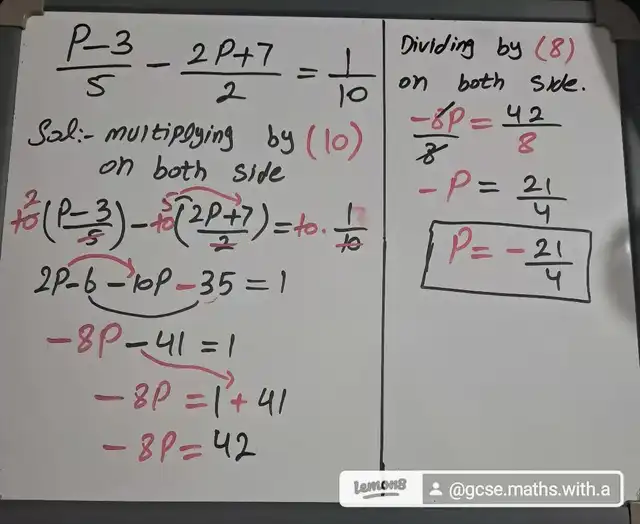 P-3/5 - 2P+7/2 = 1/10
Sol:- multiplying by (10)
on both side
2 5
10(P-3/5) - 10(2P+7/2) = 10. 1/10
2P-6-10P-35=1
-8P-41=1
-8P=1+41
-8P=42
Dividing by (8)
on both side.
-8P/8 = 42/8
-P = 21/4
P = -21/4
lemon8 @gcse.maths.with.a